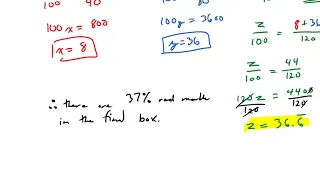 100 40
100x = 800
x = 8
100y = 3600
y = 36
z/100 = 8+36
z/100 = 44/120
120z/120 = 4400/120
z = 36.6̅
∴ there are 37% red marbles
in the final box.